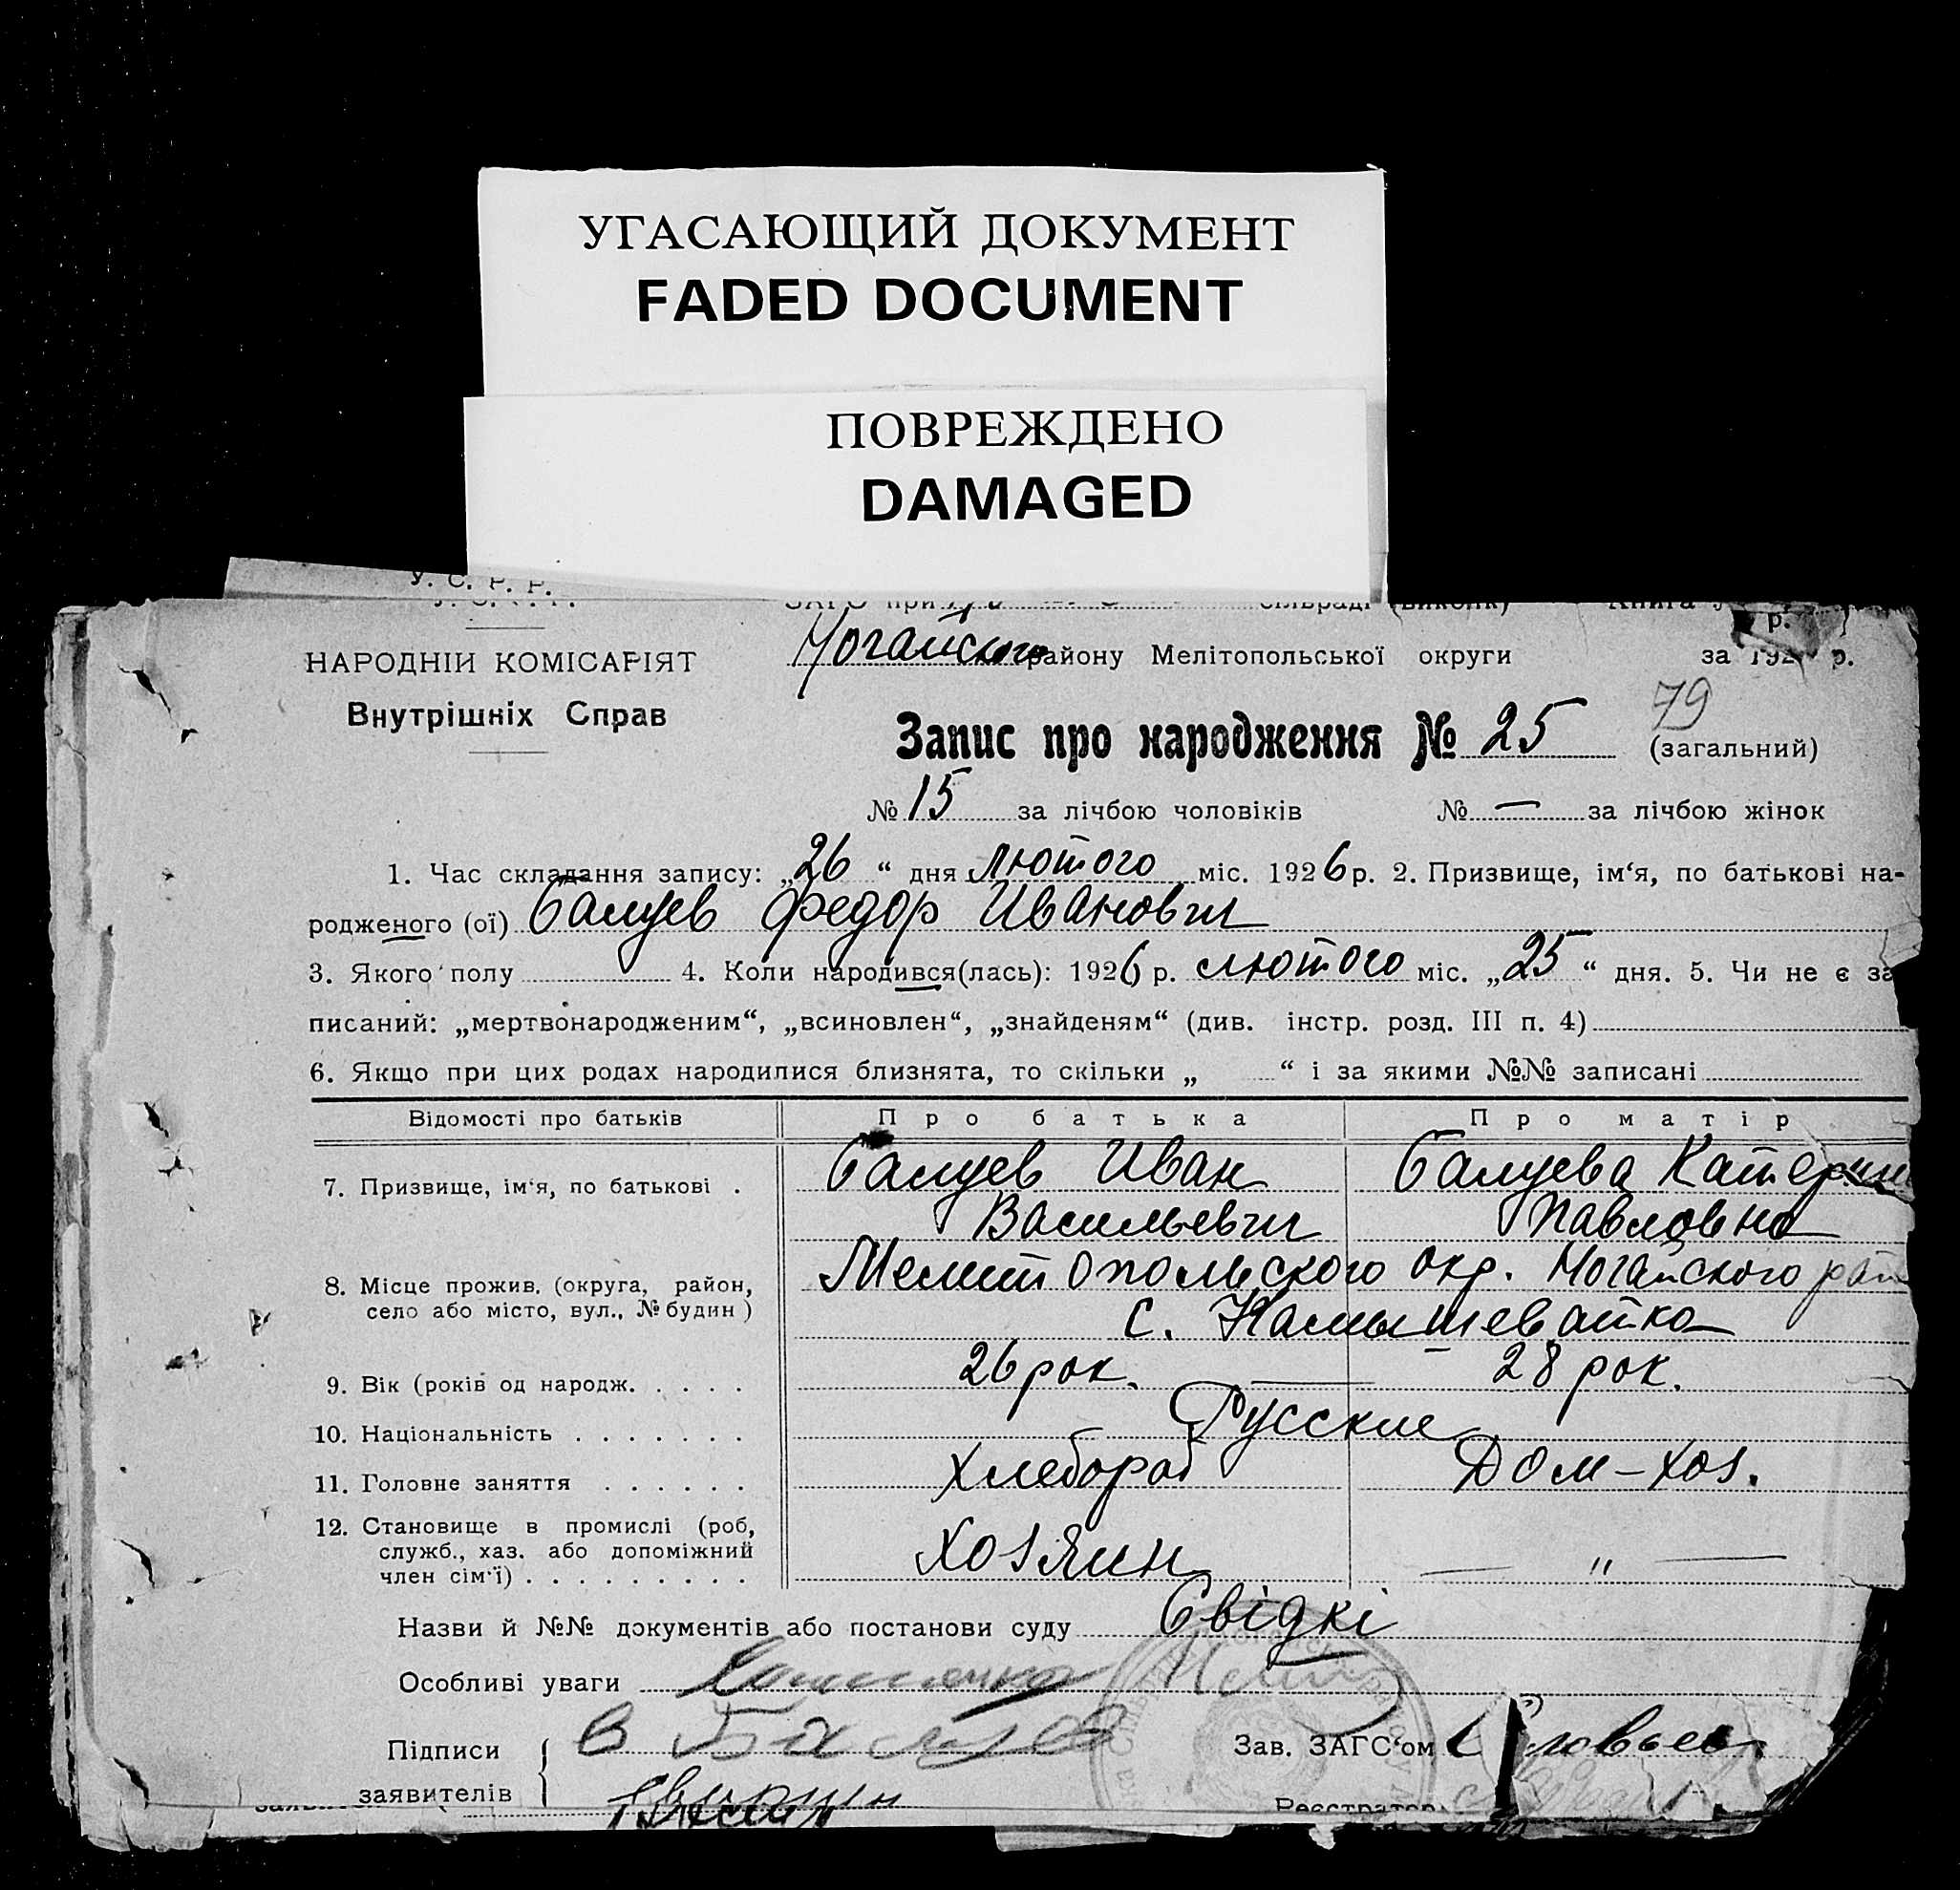 УГАСАЮЩИЙ ДОКУМЕНТ
FADED DOCUMENT
ПОВРЕЖДЕНО
DAMAGED
У. С. Р. Р.
НАРОДНІЙ КОМІСАРІЯТ
Внутрішніх Справ
Ногайского району Мелітопольської округи за 192 р.
79
Запис про народження № 25 (загальний)
№ 15 за лічбою чоловіків № — за лічбою жінок
1. Час складання запису: „26 “ дня лютого міс. 1926 р. 2. Призвище, ім‘я, по батькові на-
родженого (ої) Балуев Федор Иванович
3. Якого полу 4. Коли народився(лась): 1926 р. лютого міс. „25 “ дня. 5. Чи не є за
писаний: „мертвонародженим“, „всиновлен“, „знайденям“ (див. інстр. розд. III п. 4)
6. Якщо при цих родах народилися близнята, то скільки „ “ і за якими №№ записані
Відомості про батьків Про батька Про матір
7. Призвище, ім‘я, по батькові . Балуев Иван Балуева Катерин
Васильевич Павловна
8. Місце прожив. (округа, район, Мелитопольского окр. Ногайского рай
село або місто, вул., № будин) с. Камышеватка
9. Вік (років од народж. . . . . 26 рок. — 28 рок.
10. Національність . . . . . . . Русские
11. Головне заняття . . . . . . Хлебороб Дом-хоз.
12. Становище в промислі (роб,
служб., хаз. або допоміжний Хозяин — " —
член сім‘ї) . . . . . . . . .
Назви й №№ документів або постанови суду Свідкі
Особливі уваги
Підписи Зав. ЗАГС‘ом
заявителів
Реєстратор